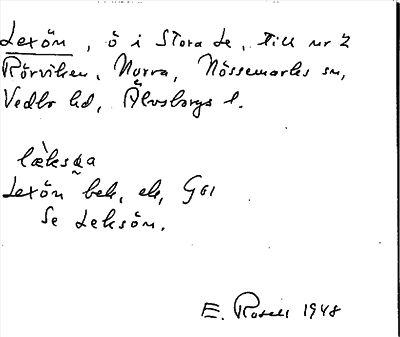 Lexön, ö i Stora Le, till nr 2
Rörviken, Norra, Nössemarks sn,
Vedbo hd, Älvsborgs l.
lö̀ksɑa
Lexön bek, ek, G61
Se Leksön.
E. Rosell 1948